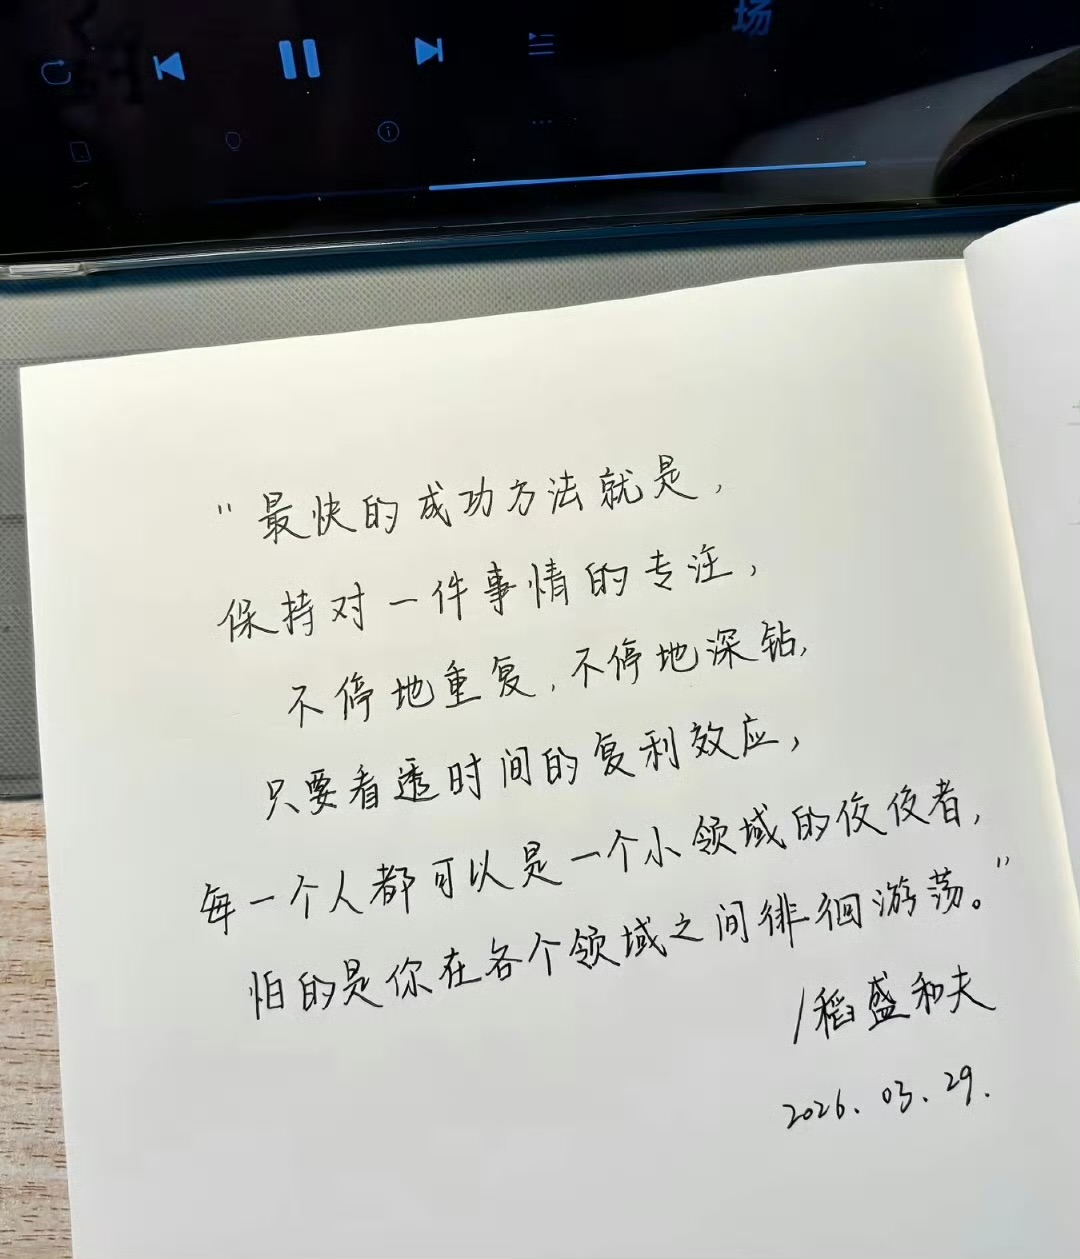 场
"最快的成功方法就是，
保持对一件事情的专注，
不停地重复，不停地深钻，
只要看透时间的复利效应，
每一个人都可以是一个小领域的佼佼者，
怕的是你在各个领域之间徘徊游荡。"
/稻盛和夫
2026.03.29.